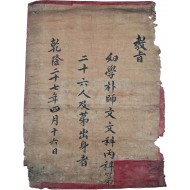 敎旨
幼學朴師文文科丙科第
二十六人及第出身者
乾隆二十七年四月十六日